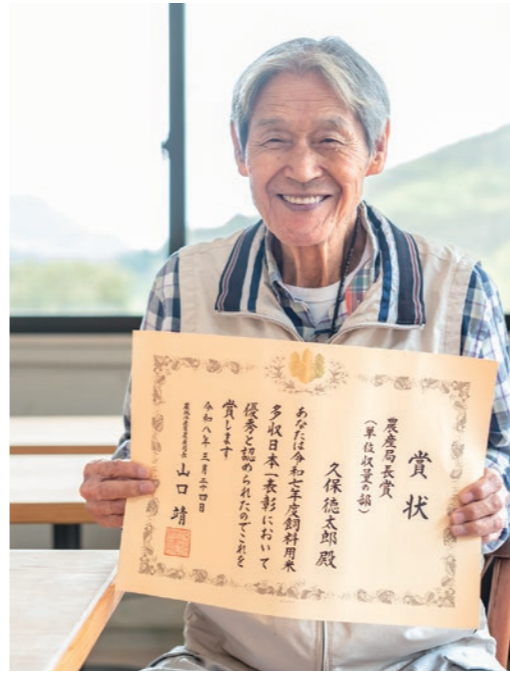 賞状
農産局長賞
（単位収量の部）
久保徳太郎 殿
あなたは令和七年度飼料用米
多収日本一表彰において
優秀と認められたのでこれを
賞します
令和八年三月二十四日
農林水産省農産局長 山口靖